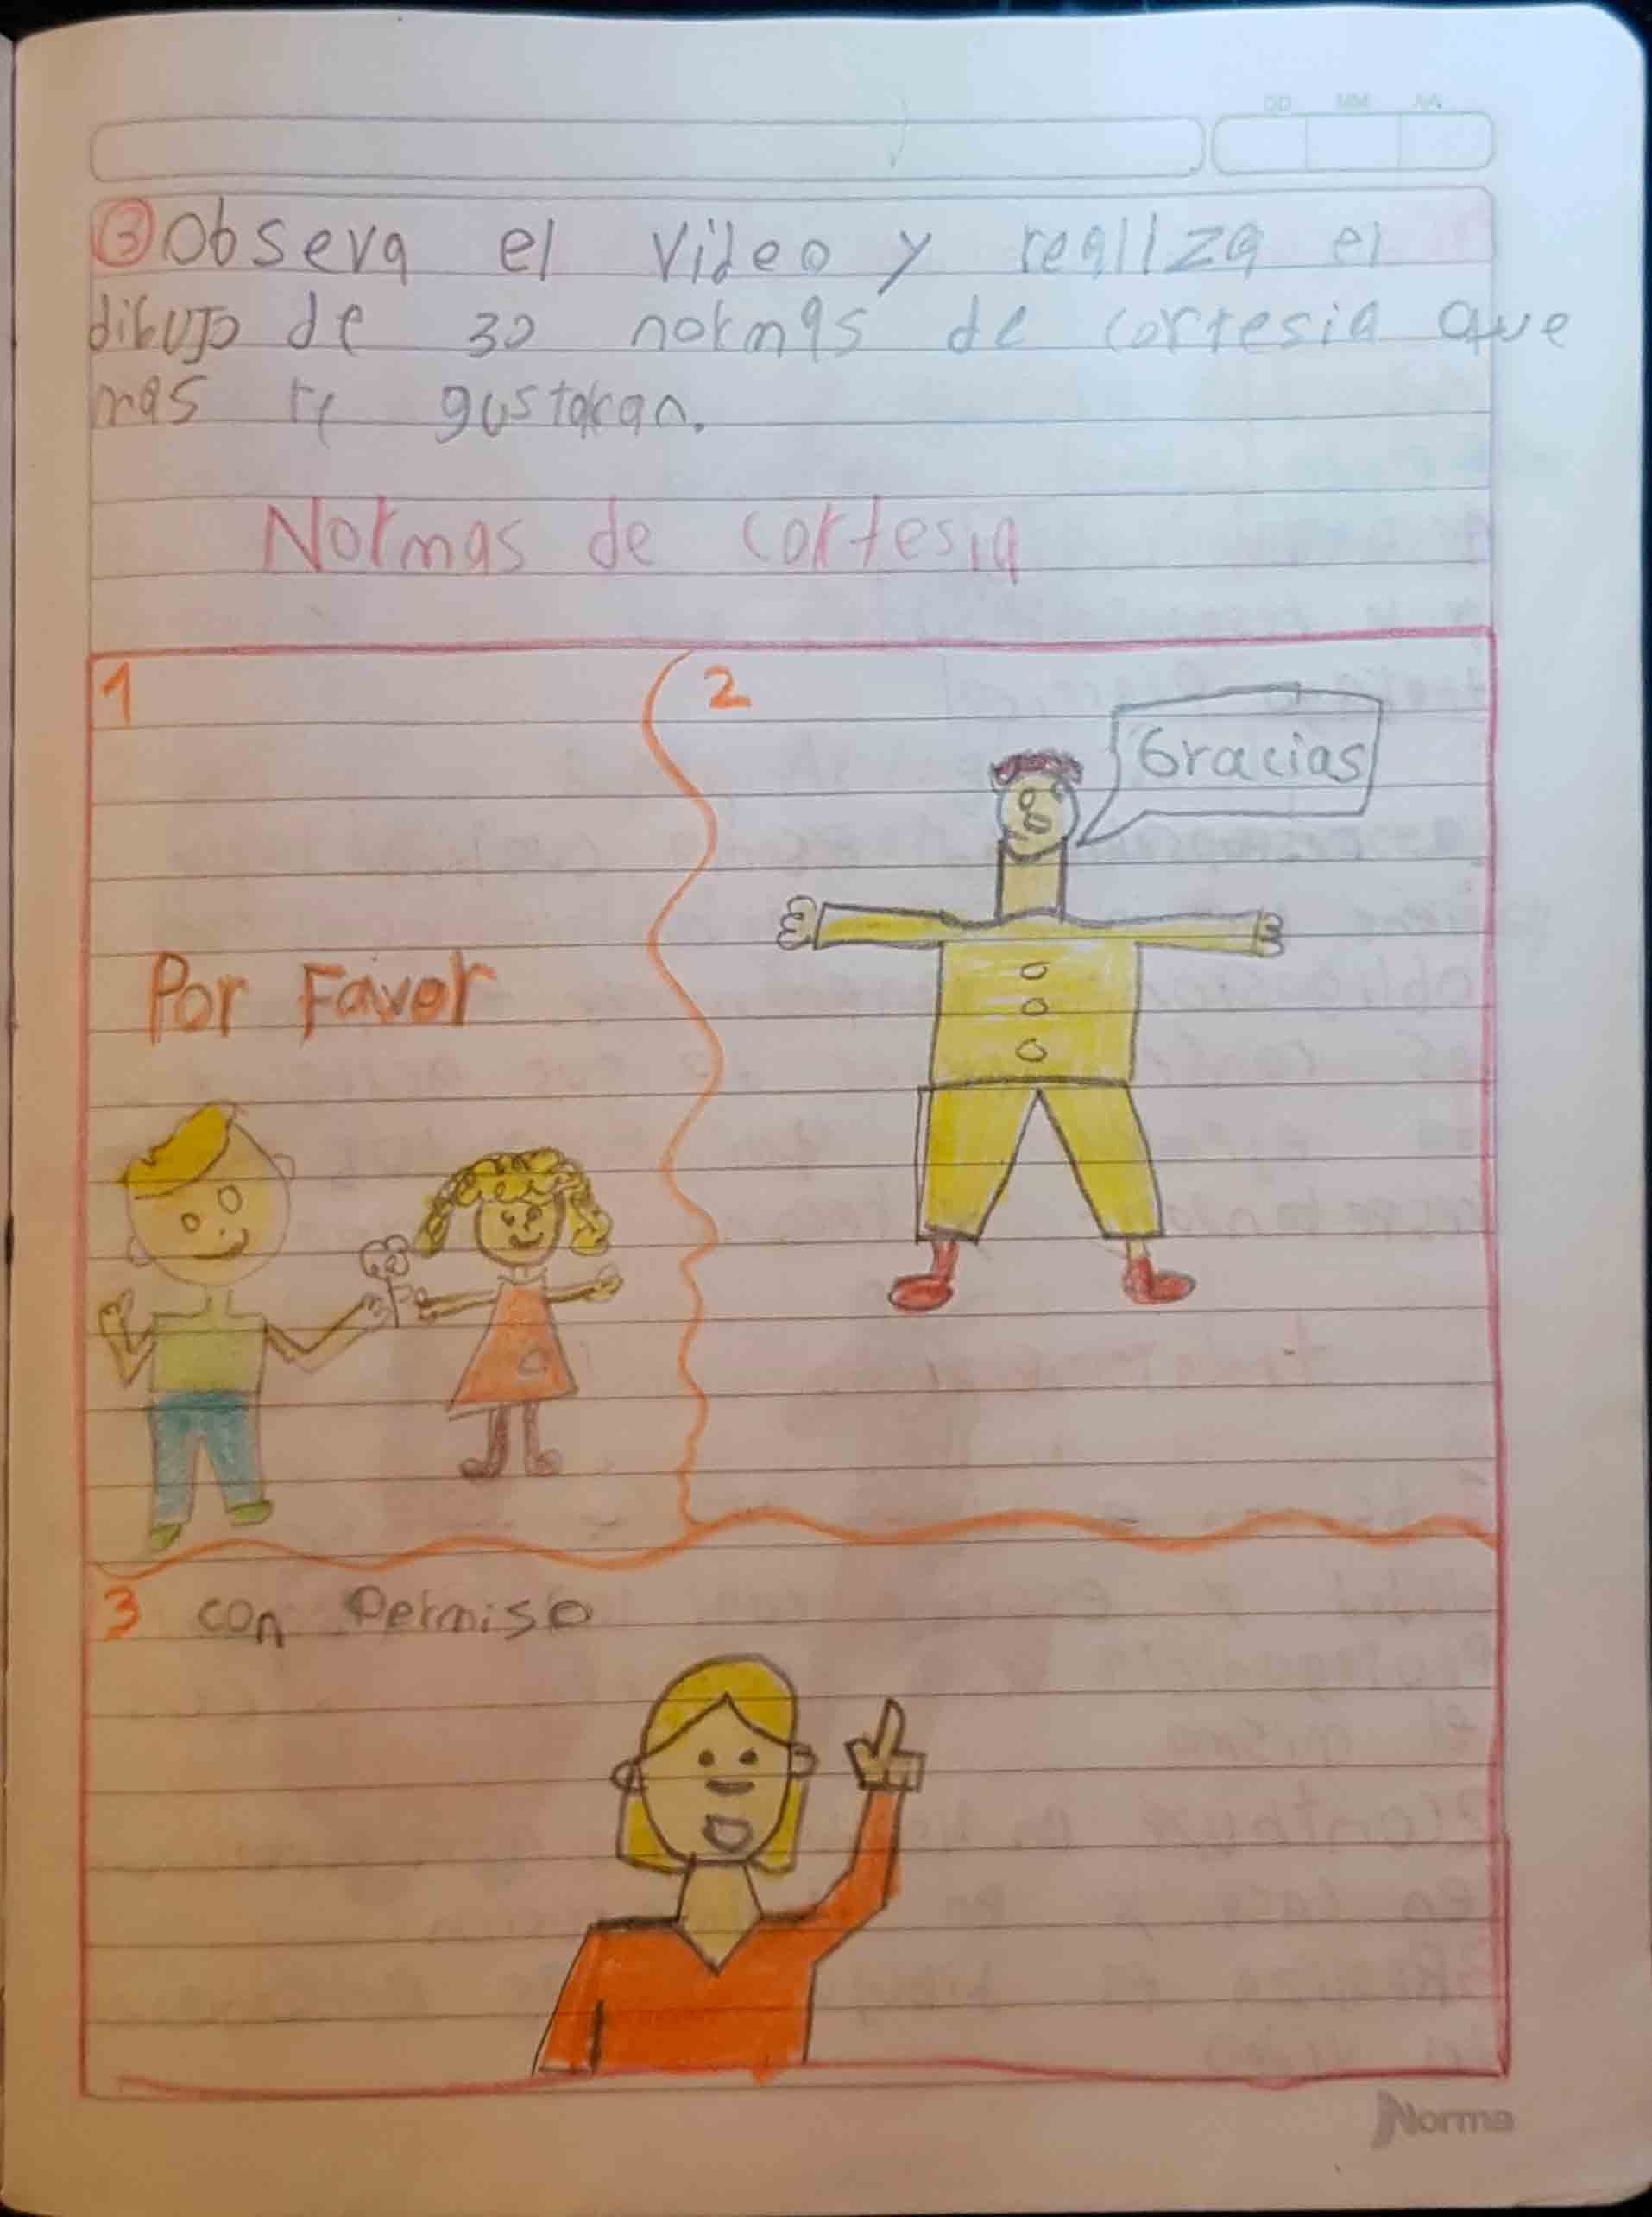 DD MM AA
③ Observa el video y realiza el
dibujo de 3o normas de cortesia que
mas te gustaran.
Normas de cortesia
1
Por Favor
2
Gracias
3 con Permiso
Norma